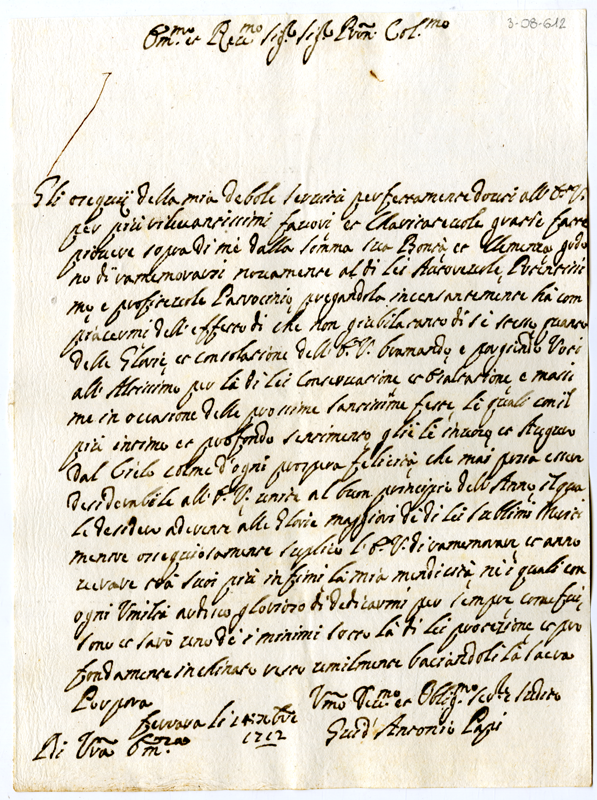 3-08-612
Em.mo et Re.mo Sig.r Sig.r Pron Col.mo
Gli ossequij della mia debole servitù perfettamente dovuti all' E. V.
per più rilevantissimi favori et Caritatevole grazie fatte
piovere sopra di me dalla somma sua Bontà et Clemenza
no di rammemorarsi novamente al di Lei Autorevole
e proficevole Patrocinio pregandola incessantemente hà com
piacermi dell' effetto di che non giubila tanto di se stesso quanto
delle Glorie et consolazione dell' E. V. bramando e porgiendo Voti
all' Altissimo per la di Lei Conservazione et Esaltazione, e massi
me in occasione delle prossime Santissime feste, le quali con il
più intimo et profondo sentimento gli et Auguro
dal Cielo colme d'ogni prospera felicità che mai possa esser
desiderabile all' E. V. unite al buon principio dell' Anno il qua
le desidero aderente alle Glorie maggiori de di lei sublimi Meriti
mentre ossequiosamente suplico l' E. V. di rammemorare et anno
verare trà suoi più infimi la mia mendicità ne i quali con
ogni Umiltà ardisco glorioso di dedicarmi per sempre come fui,
sono et sarò uno de i minimi sotto la di Lei protezione et pro
fondamente inchinato resto umilmente baciandoli la Sacra
Porpora
Di Vra Em.za
Ferrara li 14 Xbre
1712
Umo Devmo et Obligmo Servre
Guid' Antonio Papi